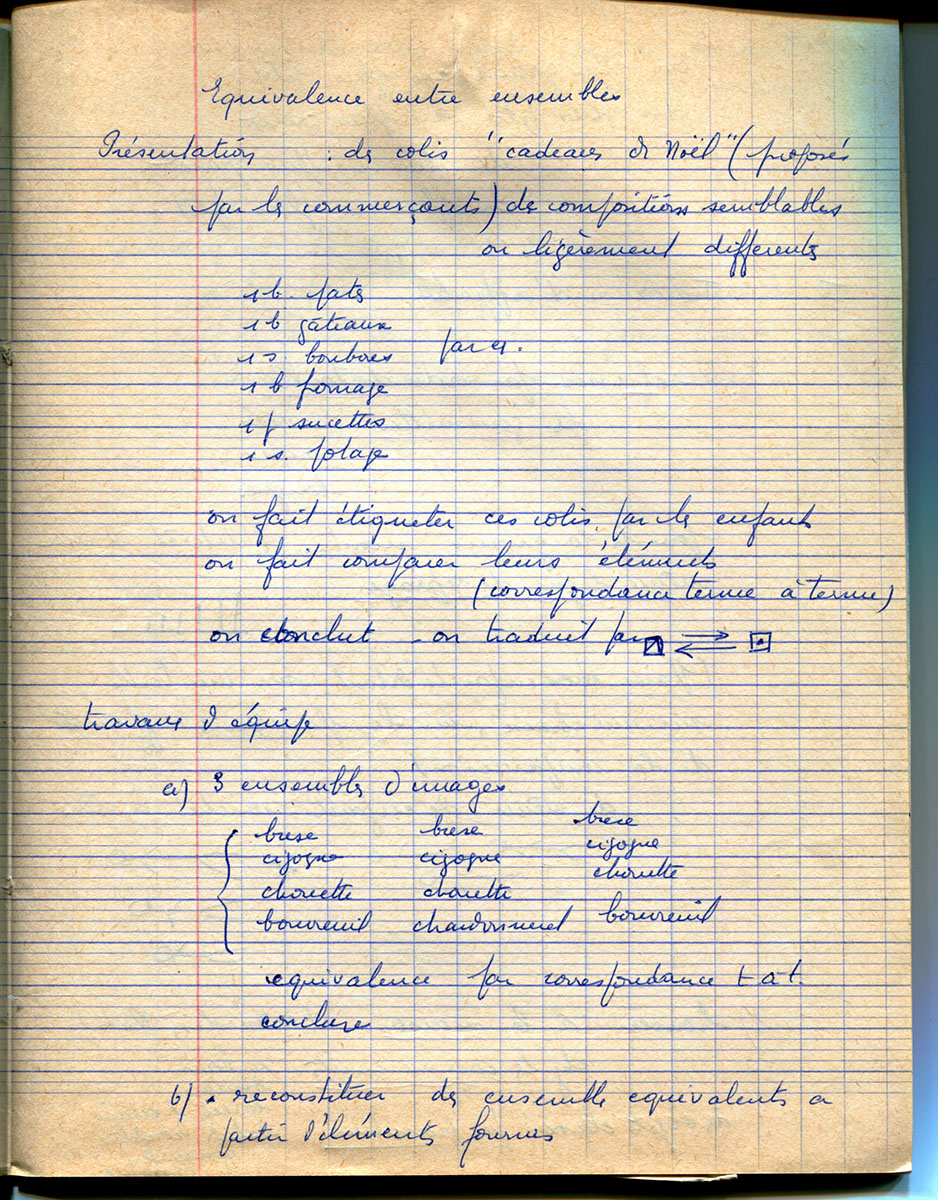 Equivalence entre ensembles
Présentation : de colis "cadeaux de Noël" (proposés
par les commerçants) de compositions semblables
ou légèrement differents
1 b. pats
1 b gâteaux
1 s. bonbons par 4.
1 b fromage
1 p sucettes
1 s. potage
on fait étiqueter ces colis par les enfants
on fait comparer leurs éléments
(correspondance terme à terme)
on conclut - on traduit par
travaux d'équipe
a) 3 ensembles d'images
buse buse buse
cigogne cigogne cigogne
chouette chouette chouette
bouvreuil chardonneret bouvreuil
equivalence par correspondance t à t.
conclure
b) . reconstituer des ensemble equivalents a
partir d'éléments fournis